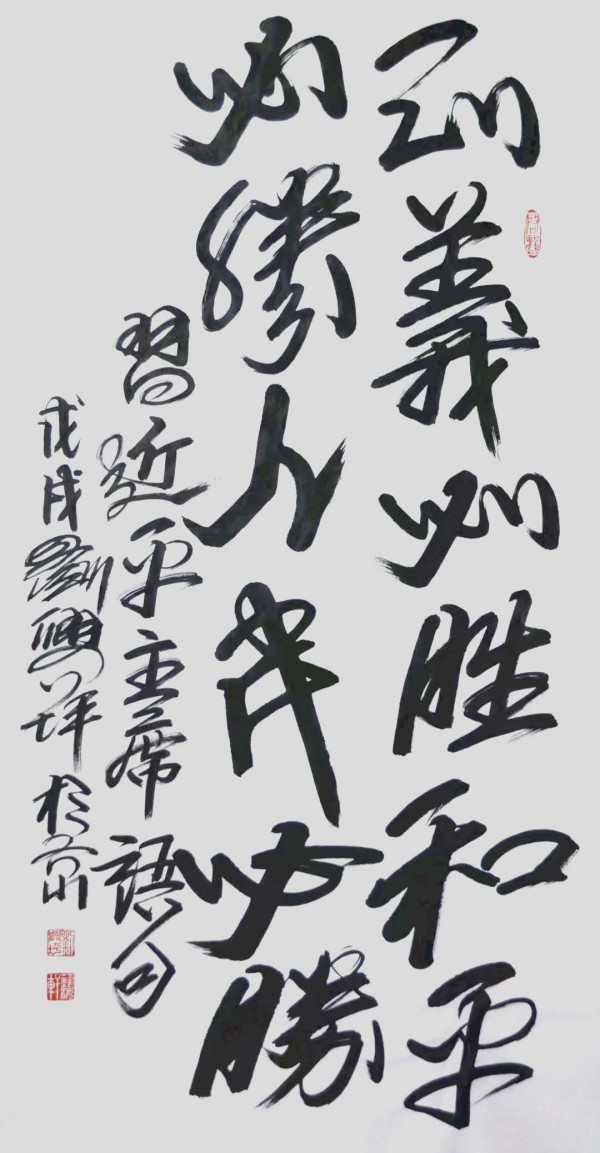 正義必胜和平
必勝人民必勝
習近平主席語句
戊戌劉興坪於京